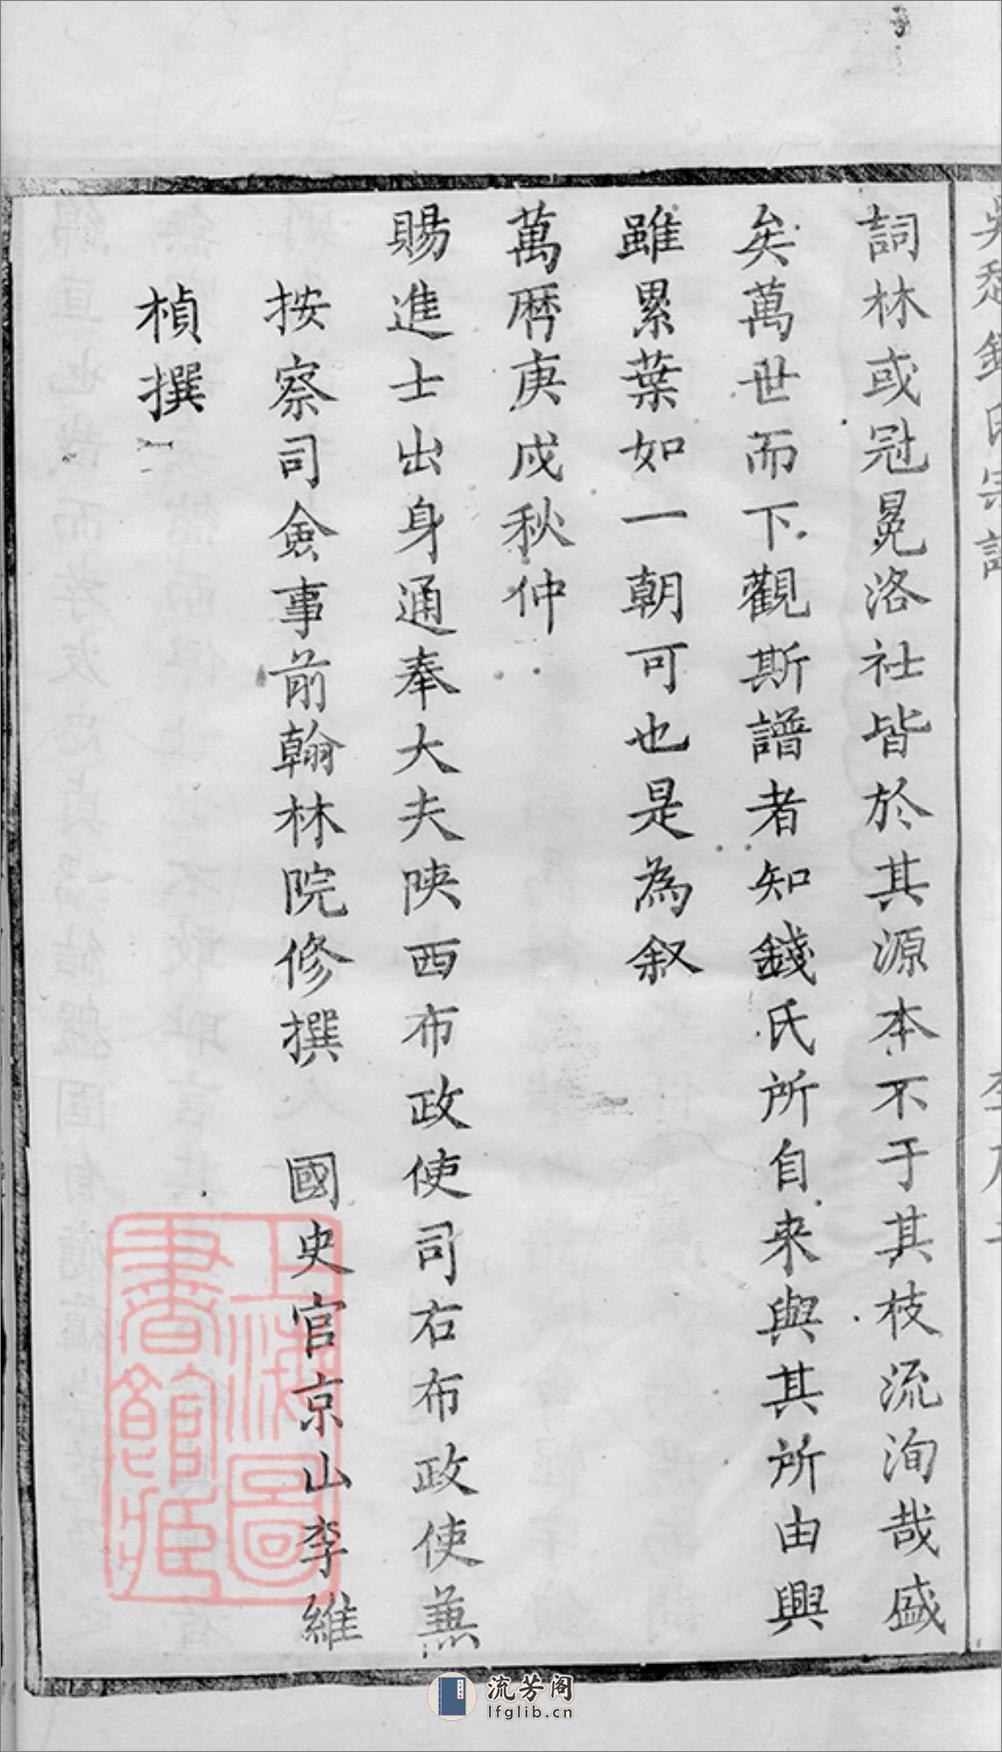 詞林或冠冕洛社皆於其源本不于其枝流洵哉盛
矣萬世而下觀斯譜者知錢氏所自来與其所由興
雖累葉如一朝可也是為叙
萬曆庚戌秋仲
賜進士出身通奉大夫陝西布政使司右布政使兼
按察司僉事前翰林院修撰 國史官京山李維
楨撰
上海圖書館藏
流芳阁
lfglib.cn